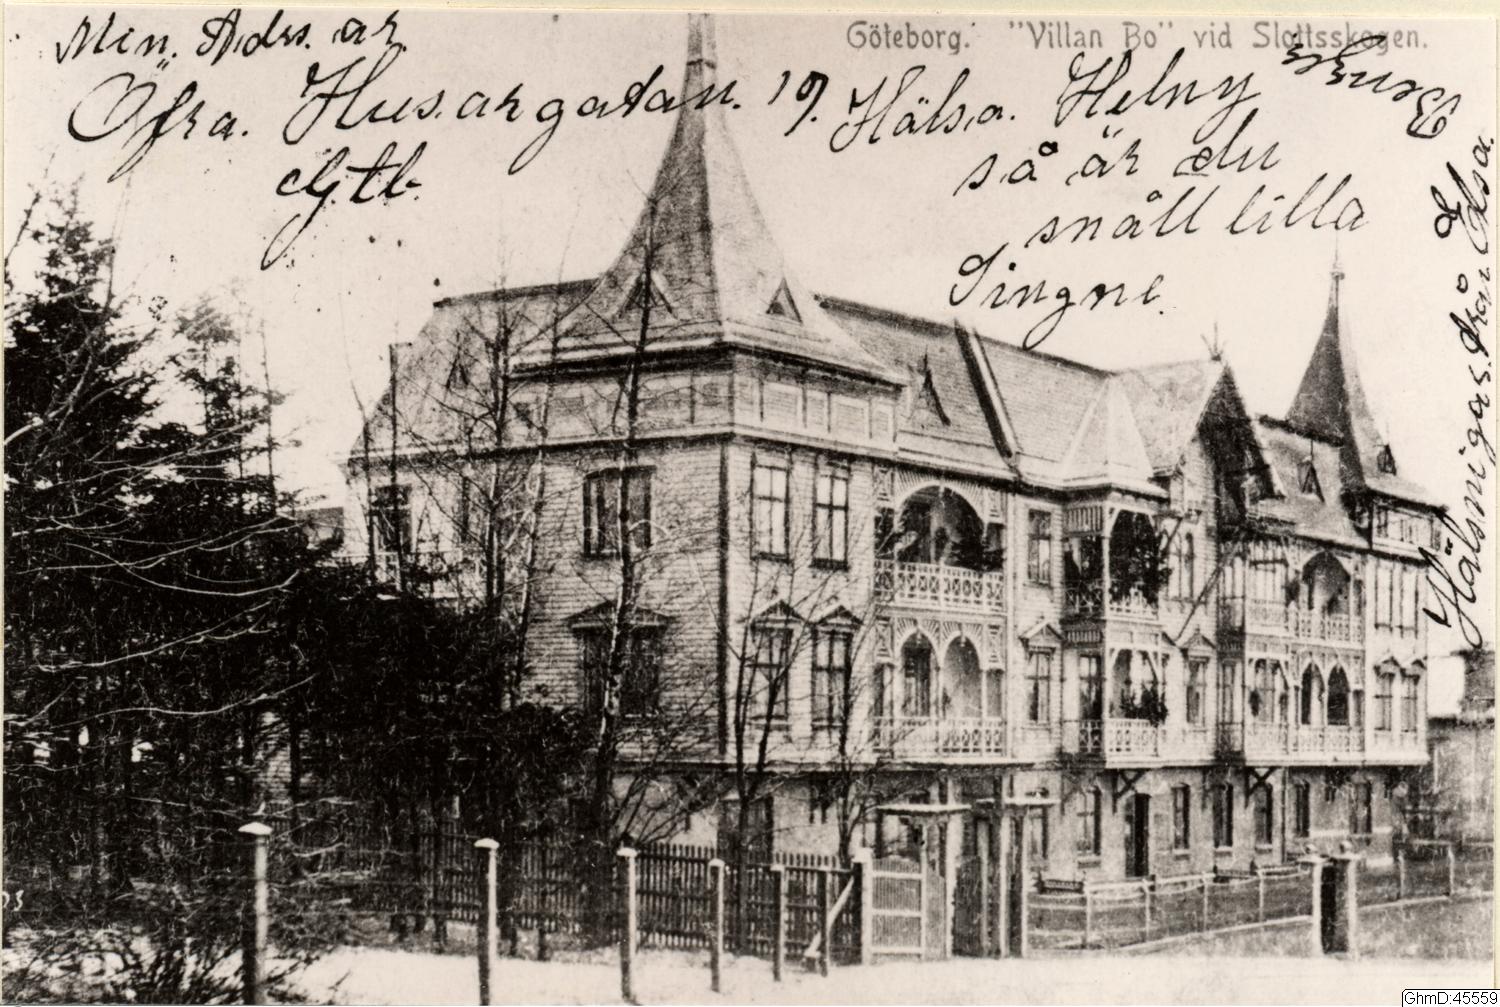 Göteborg. "Villan Bo" vid Slottsskogen.
Min. Adrs. är
Öfra. Husargatan. 19.
Gtb.
Hälsa. Helny
så är du
snäll lilla
Singne.
Hälsningar. från Elsa.
GhmD:45559